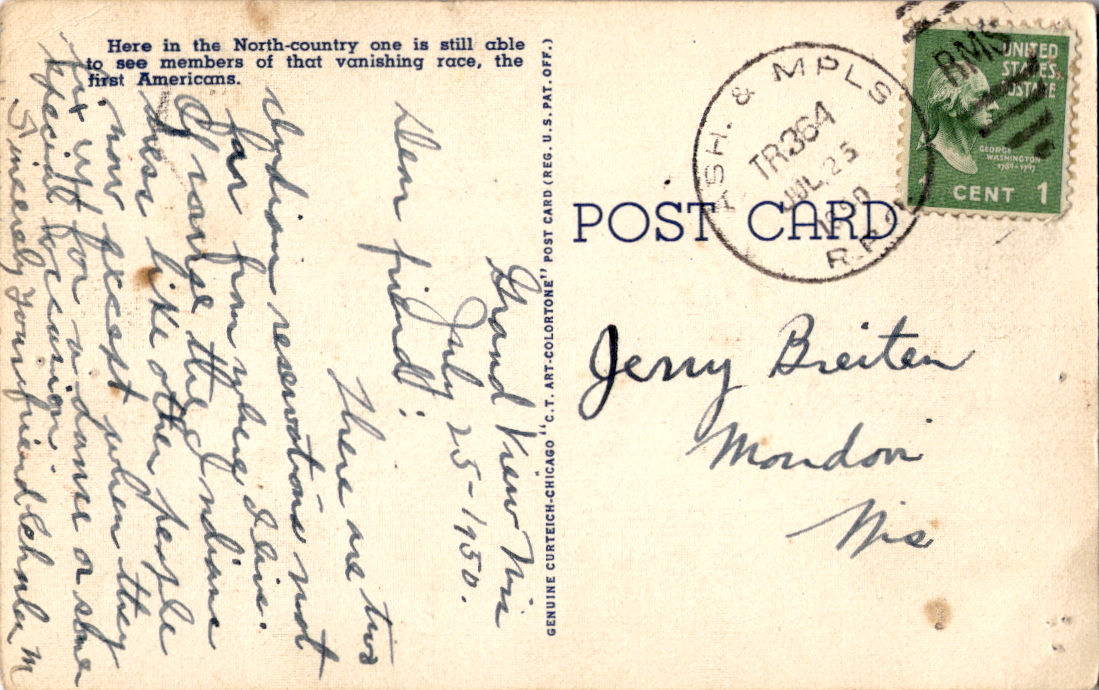 Here in the North-country one is still able
to see members of that vanishing race, the
first Americans.
Grand View Wis
July 25-1950.
Dear friend:
There are two
Indian reservations not
far from where I live.
Of course the Indians
dress like other people
now, except when they
fix up for a dance or some
special occasion.
Sincerely Your friend
GENUINE CURTEICH-CHICAGO "C.T. ART-COLORTONE" POST CARD (REG. U.S. PAT. OFF.)
ASH. & MPLS
TR364
JUL 25
1950
R.P.O.
RMS
UNITED
STATES
POSTAGE
GEORGE
WASHINGTON
1789-1797
1 CENT 1
POST CARD
Jerry Breiten
Mondovi
Wis